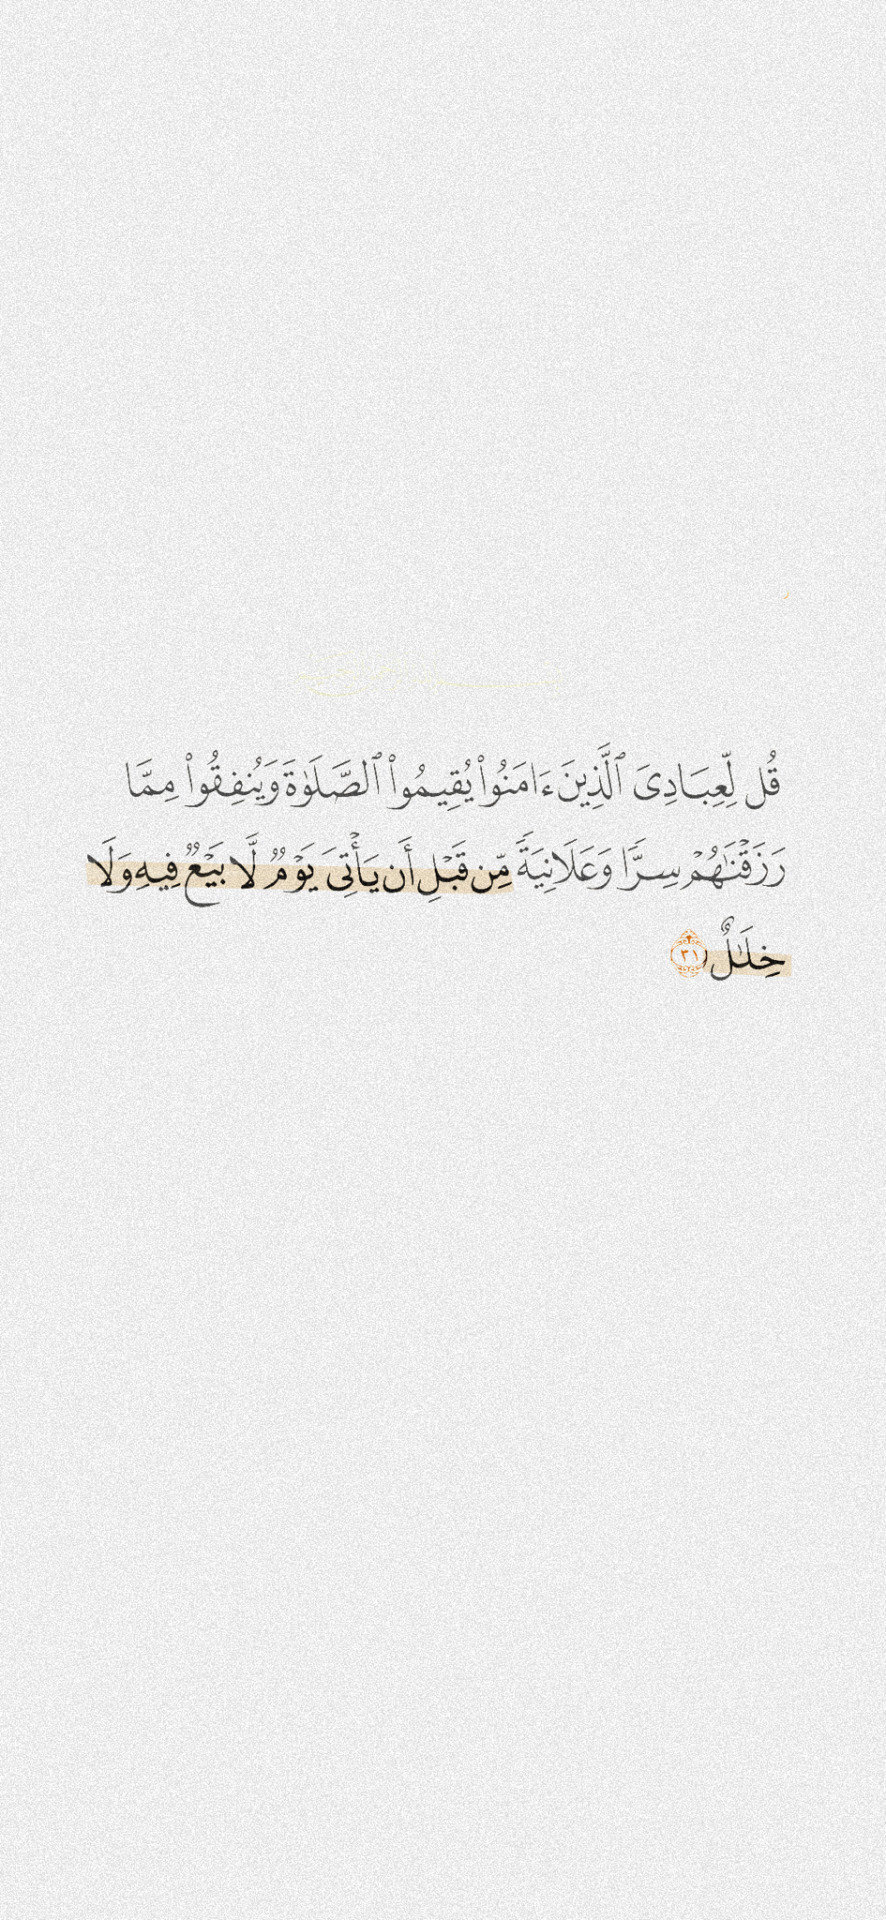 قُل لِّعِبَادِىَ ٱلَّذِينَ ءَامَنُوا۟ يُقِيمُوا۟ ٱلصَّلَوٰةَ وَيُنفِقُوا۟ مِمَّا
رَزَقْنَٰهُمْ سِرًّا وَعَلَانِيَةً مِّن قَبْلِ أَن يَأْتِىَ يَوْمٌ لَّا بَيْعٌ فِيهِ وَلَا
خِلَٰلٌ ٣١